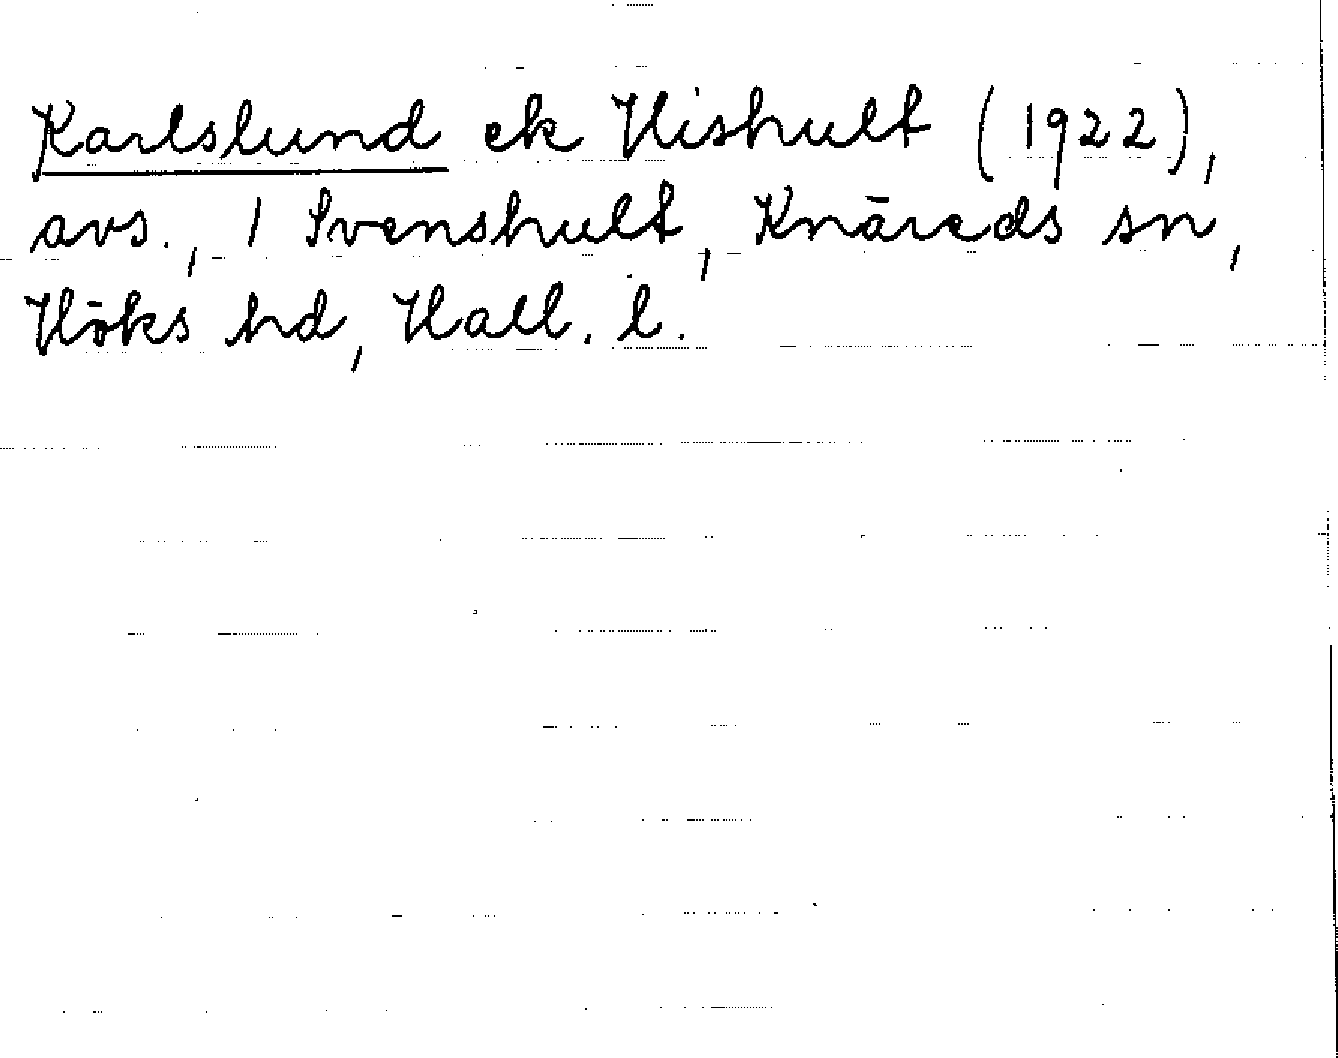 Karlslund ek Hishult (1922),
avs., 1 Svenshult, Knäreds sn,
Höks hd, Hall. l.